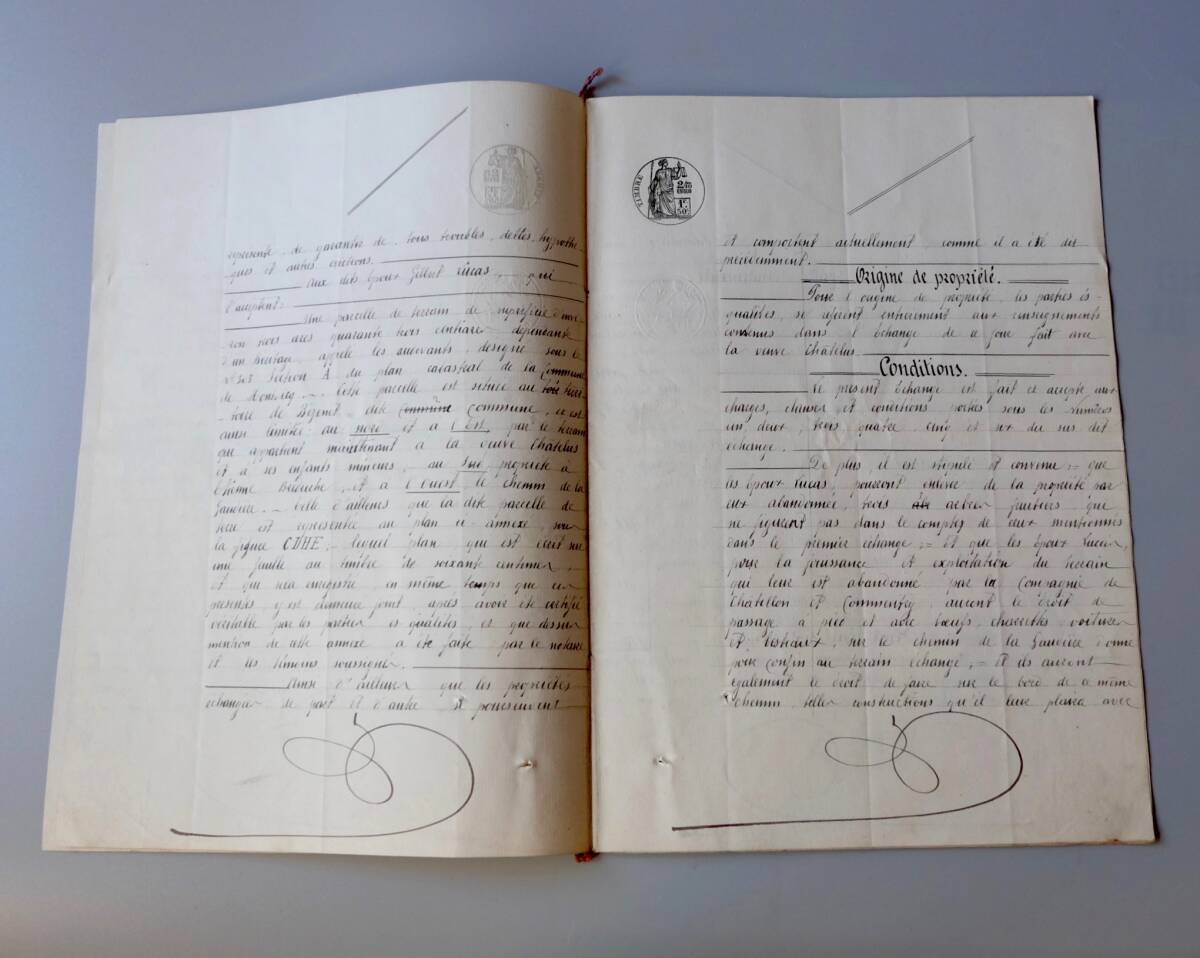 représente, de garantie de tous troubles, dettes, hypothè-
ques et autres évictions.
Aux dits époux Gilbert Lucas, qui
l'acceptent:
Une parcelle de terrain de superficie d'envi-
ron trois ares quarante trois centiares dépendante
d'un héritage appelé les suivants, désigné sous le
Section A du plan cadastral de la Commune
de Doméz. Cette parcelle est située au terri-
toire de Bézenet, dite commune, et est
ainsi limitée: au nord et à l'est, par le terrain
que appartient maintenant à la veuve Châtelus
et à ses enfants mineurs, au Sud propriété à
et à l'ouest le chemin de la
Gauvière. Telle d'ailleurs que la dite parcelle de
terre est représentée au plan ci-annexé, sous
la figure CDHE, lequel plan qui est écrit sur
une feuille au timbre de soixante centimes,
et qui sera enregistré en même temps que ces
présentes, y est demeuré joint, après avoir été certifié
véritable par les parties ès qualités, et que dessus
mention de cette annexe a été faite par le notaire
et les témoins soussignés.
Ainsi d'ailleurs que les propriétés
échangées de part et d'autre se poursuivent
TIMBRE
1F
50c
et comportent actuellement, comme il a été dit
précédemment.
Origine de propriété.
Pour l'origine de propriété, les parties ès-
qualités, se réfèrent entièrement aux renseignements
contenus dans l'échange de ce jour fait avec
la veuve Châtelus.
Conditions.
Le présent échange est fait et accepté aux
charges, clauses et conditions portées sous les numéros
un deux, trois quatre, cinq et six du sus dit
échange.
De plus, il est stipulé et convenu := que
les époux Lucas, pourront enlever de la propriété par
eux abandonnée, trois arbres fruitiers que
ne figurent pas dans le comptes de ceux mentionnés
dans le premier échange; = Et que les époux Lucas,
pour la jouissance et exploitation du terrain
qui leur est abandonné par la Compagnie de
Châtillon et Commentry, auront le droit de
passage à pied et avec bœufs, charrettes, voitures
et bestiaux, sur le chemin de la Gauvière donné
pour confin au terrain échangé; = Et ils auront
également le droit de faire sur le bord de ce même
chemin, telles constructions qu'il leur plaira avec